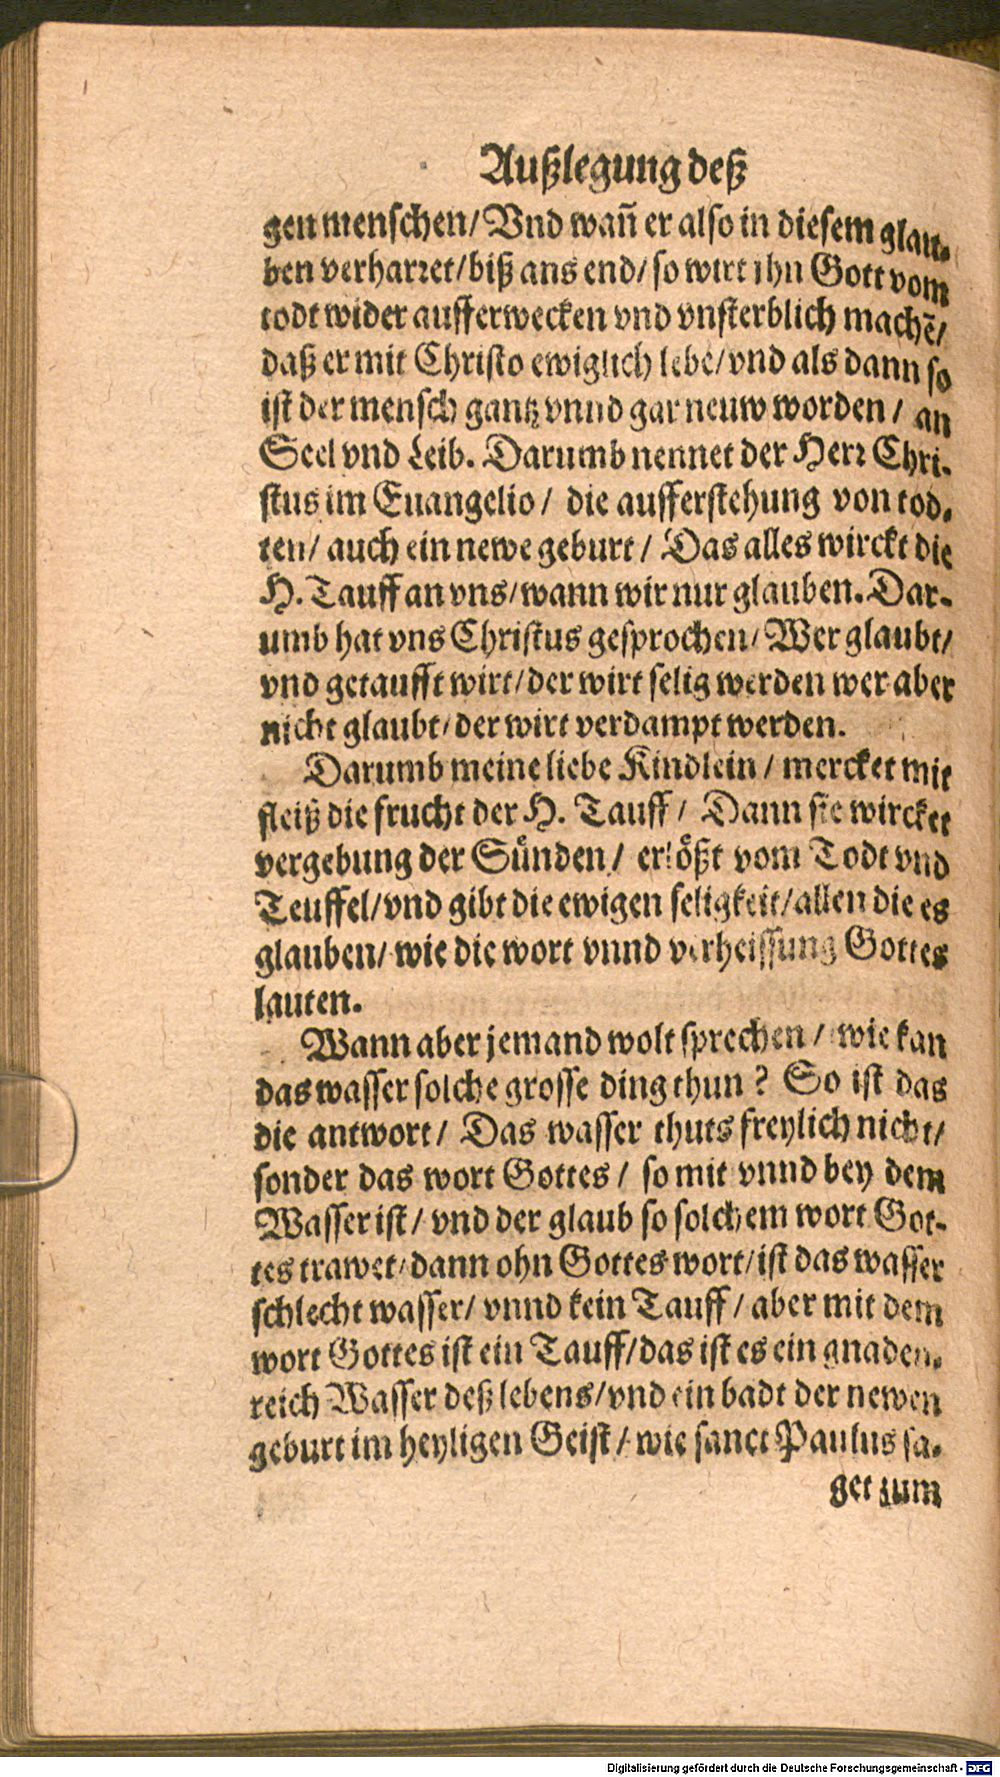 Außlegung deß
gen menschen/ Vnd wañ er also in diesem glau-
ben verharret/ biß ans end/ so wirt ihn Gott vom
todt wider aufferwecken vnd vnsterblich machẽ/
daß er mit Christo ewiglich lebe/ vnd als dann so
ist der mensch gantz vnnd gar neuw worden/ an
Seel vnd Leib. Darumb nennet der Herr Chri-
stus im Euangelio/ die aufferstehung von tod-
ten/ auch ein newe geburt/ Das alles wirckt die
H. Tauff an vns/ wann wir nur glauben. Dar-
umb hat vns Christus gesprochen/ Wer glaubt/
vnd getaufft wirt/ der wirt selig werden wer aber
nicht glaubt/ der wirt verdampt werden.
Darumb meine liebe Kindlein/ mercket mit
fleiß die frucht der H. Tauff/ Dann sie wircket
vergebung der Sünden/ erlößt vom Todt vnd
Teuffel/ vnd gibt die ewigen seligkeit/ allen die es
glauben/ wie die wort vnnd verheissung Gottes
lauten.
Wann aber jemand wolt sprechen/ wie kan
das wasser solche grosse ding thun? So ist das
die antwort/ Das wasser thuts freylich nicht/
sonder das wort Gottes/ so mit vnnd bey dem
Wasser ist/ vnd der glaub so solchem wort Got-
tes trawet/ dann ohn Gottes wort/ ist das wasser
schlecht wasser/ vnnd kein Tauff/ aber mit dem
wort Gottes ist ein Tauff/ das ist es ein gnaden-
reich Wasser deß lebens/ vnd ein badt der newen
geburt im heyligen Geist/ wie sanct Paulus sa-
get zum
Digitalisierung gefördert durch die Deutsche Forschungsgemeinschaft - DFG